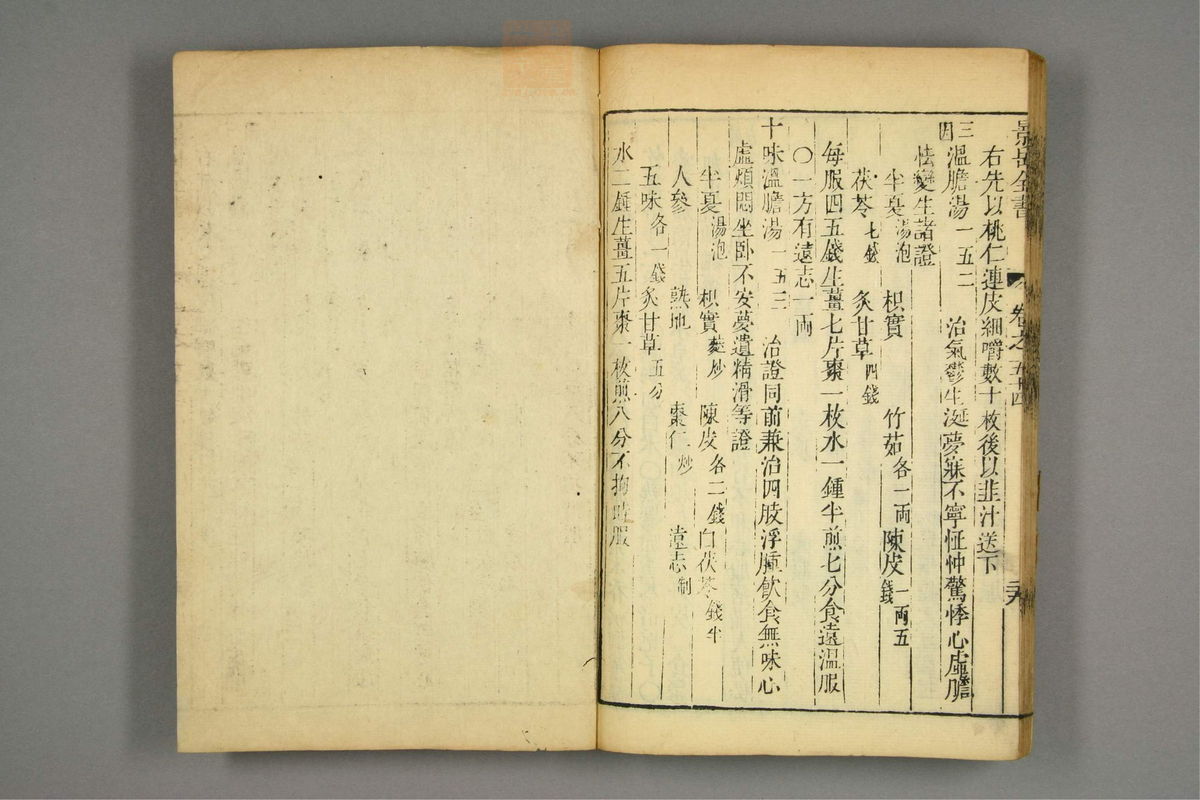 景岳全書 卷之五十四 二十九
右先以桃仁連皮細嚼數十枚後以韭汁送下
三因溫膽湯一五二 治氣鬱生涎夢寐不寧怔忡驚悸心虛膽
怯變生諸證
半夏湯泡 枳實 竹茹各一両 陳皮一両五錢
茯苓七錢 炙甘草四錢
每服四五錢生薑七片棗一枚水一鍾半煎七分食遠溫服
〇一方有遠志一両
十味溫膽湯一五三 治證同前兼治四肢浮腫飲食無味心
虛煩悶坐臥不安夢遺精滑等證
半夏湯泡 枳實麩炒 陳皮各二錢 白茯苓錢半
人參 熟地 棗仁炒 遠志制
五味各一錢 炙甘草五分
水二鍾生薑五片棗一枚煎八分不拘時服